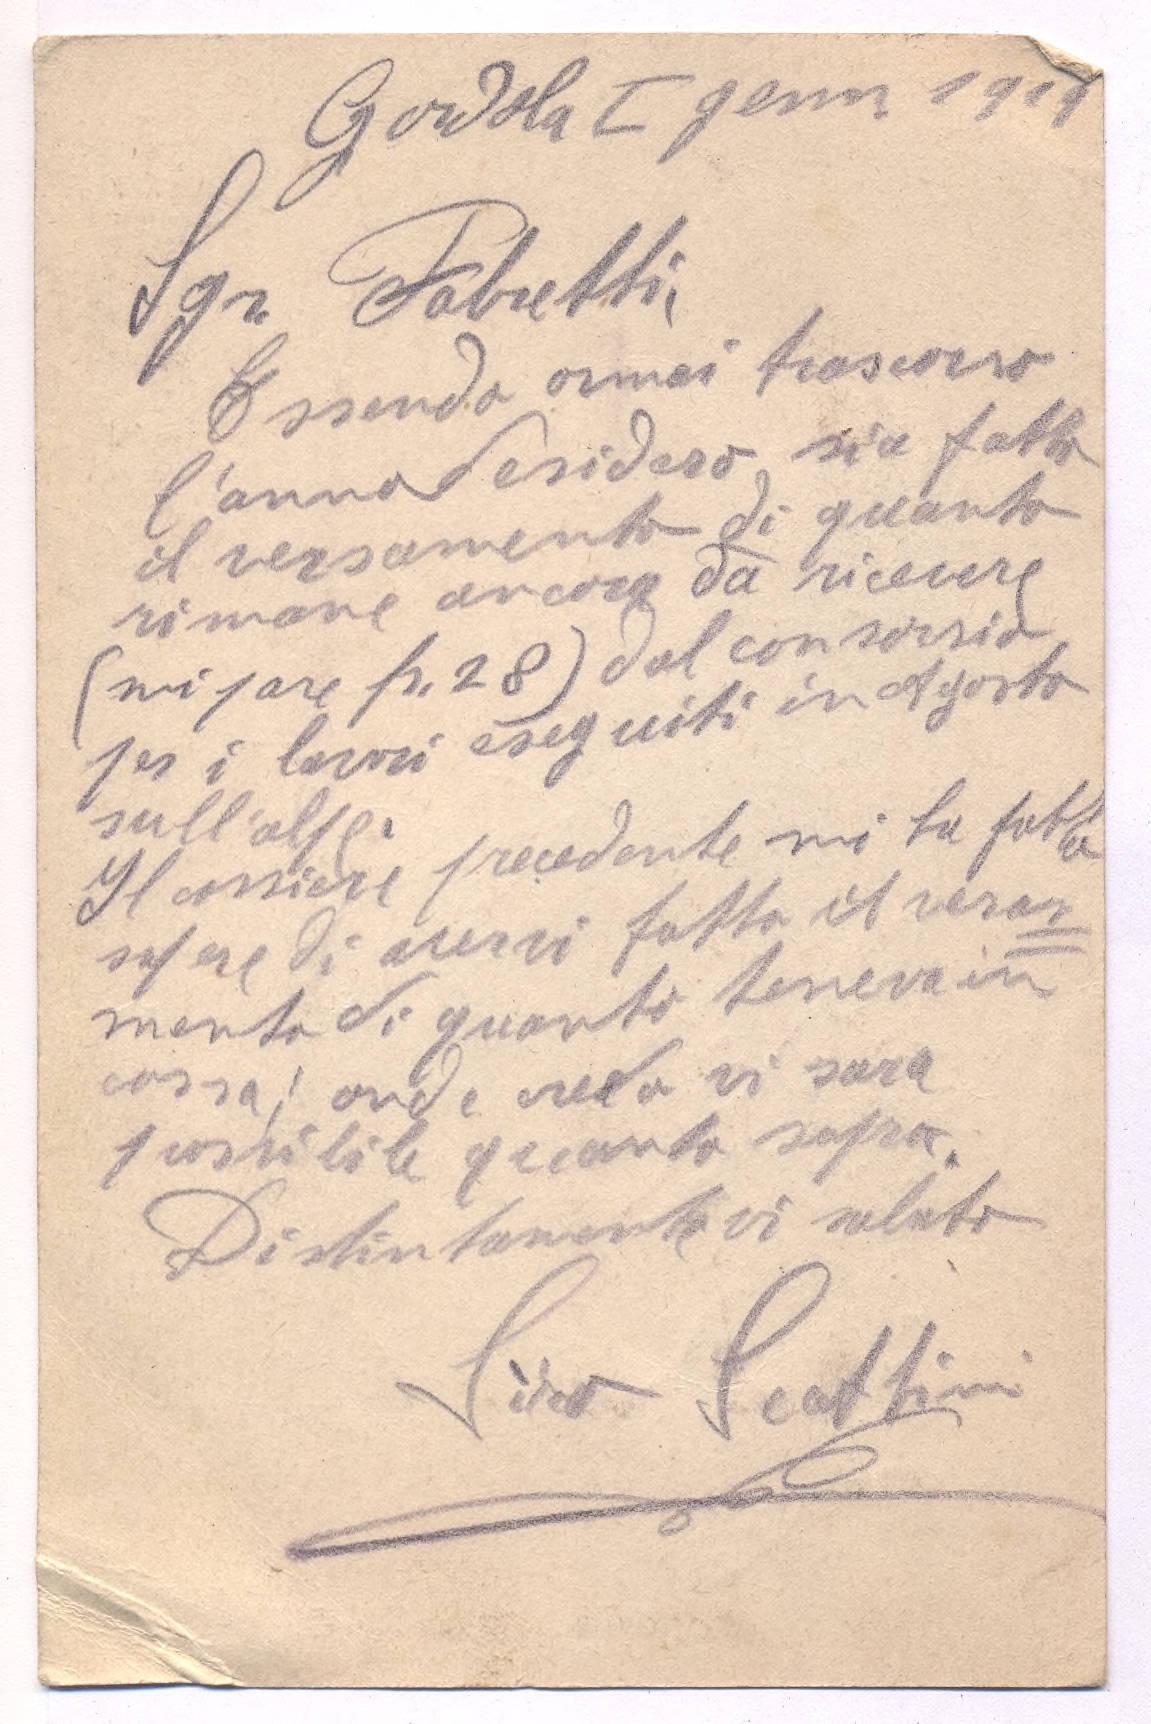 Gordola I genn 1919
Sgr. Fabretti,
Essendo ormai trascorso
l'anno desidero, sia fatto
il versamento di quanto
rimane ancora da ricevere
(mi pare fr. 28) dal consorsio
per i lavori eseguiti in Agosto
sull'alpe.
Il cassiere precedente mi ha fatto
sapere di avervi fatto il versa=
mento di quanto teneva in
cassa; onde credo vi sara
possibile quanto sopra.
Distintamente vi saluto
Siro Scattini